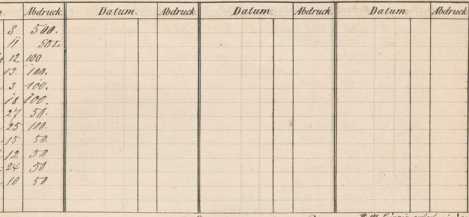 Abdruck. Datum. Abdruck. Datum. Abdruck. Datum. Abdruck.
8 500.
11 50
12 100
13 100.
3 100.
18 100.
27 50.
25 100
15 50
12 50
24 50
10 50